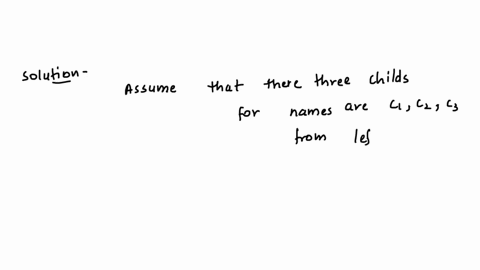 Solution-
Assume that there three childs
for names are c1, c2, c3
from lef